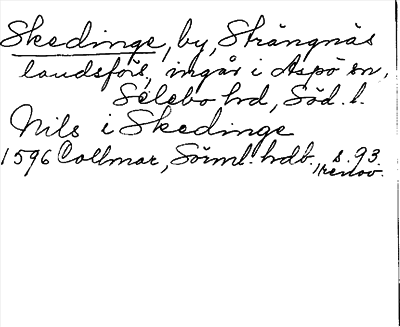 Skedinge, by, Strängnäs
landsförs, ingår i Aspö sn,
Selebo hrd, Söd. l.
Nils i Skedinge
1596 Collmar, Sörml. hdb., s. 93.
renov.